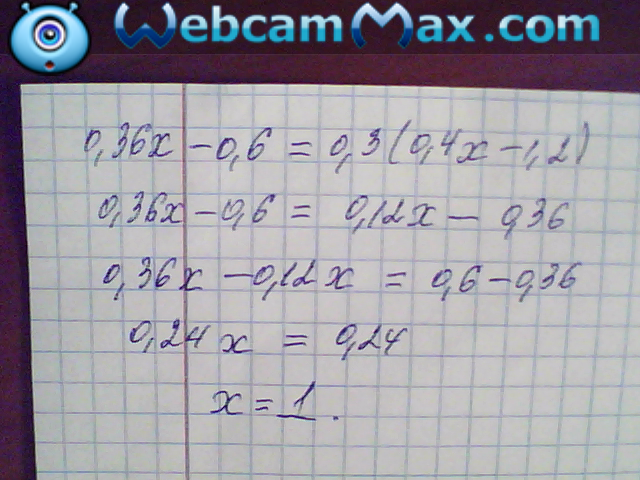 WebcamMax.com
0,36x - 0,6 = 0,3(0,4x - 1,2)
0,36x - 0,6 = 0,12x - 0,36
0,36x - 0,12x = 0,6 - 0,36
0,24x = 0,24
x = 1.